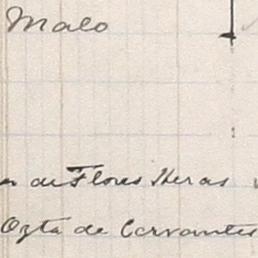 Malo
de Flores Heras
Ozta de Cervantes